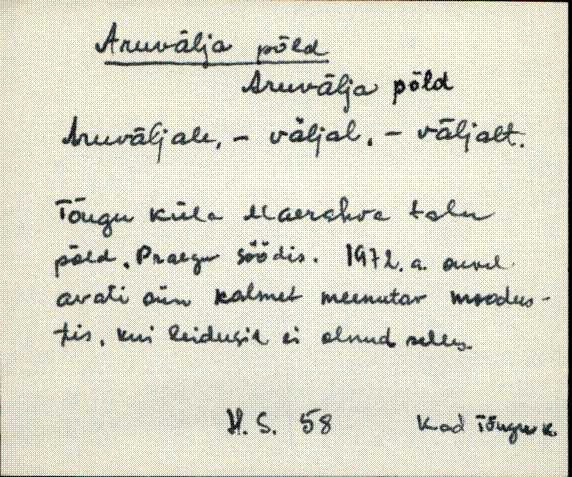 Aruvälja põld
Aruvälja põld
Aruväljale, - väljal, - väljalt.
Tõugu küla Maerahva talu
põld. Praegu söödis. 1972. a. suvel
avati siin kalmet meenutav moodus-
tis, kui leidusid ei olnud selles.
H. S. 58
Kad Tõugu k.